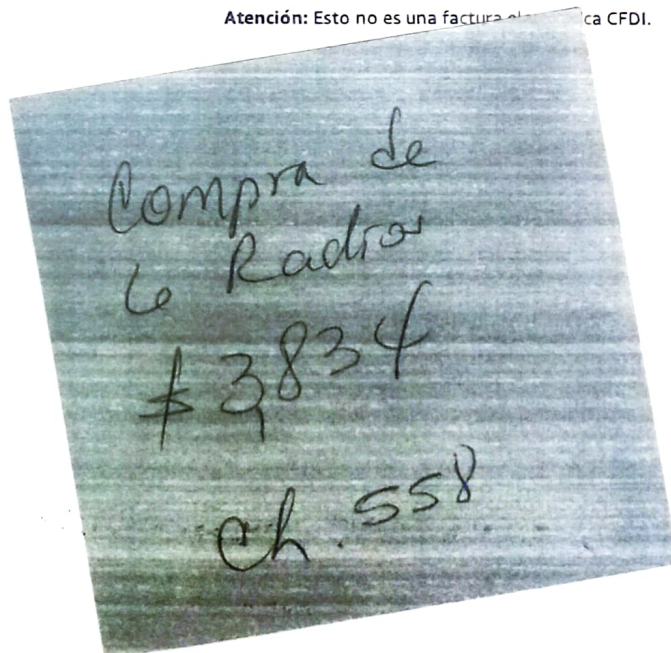 Atención: Esto no es una factura CFDI.
Compra de
6 Radios
$3,834
Ch. 558